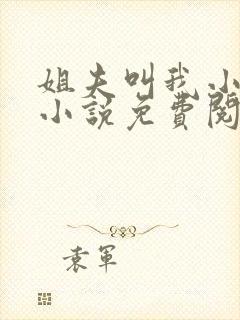 姐夫叫我小
小説免費閱
袁軍